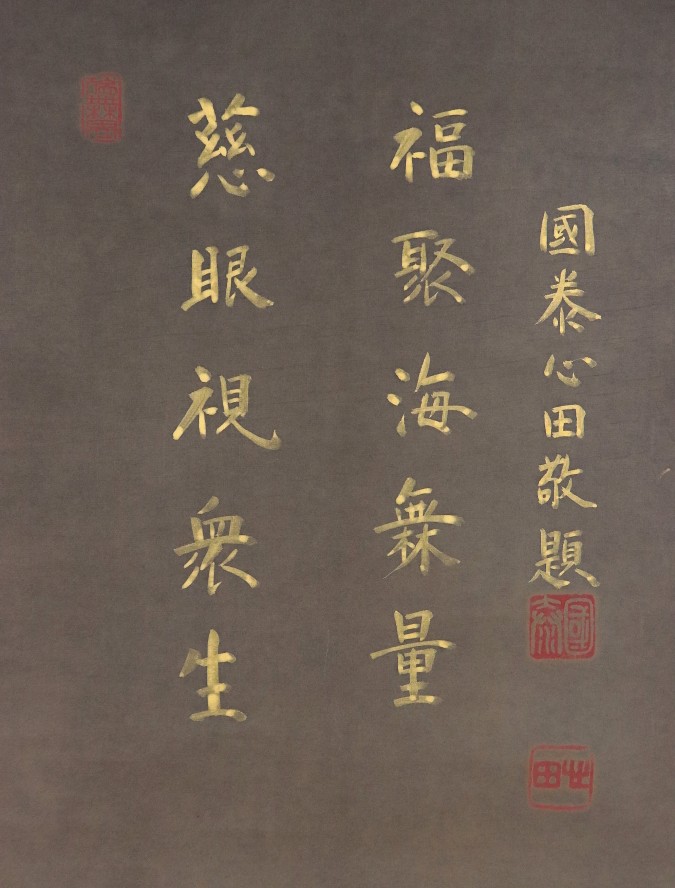 慈眼視衆生
福聚海無量
國泰心田敬題
國泰
心田